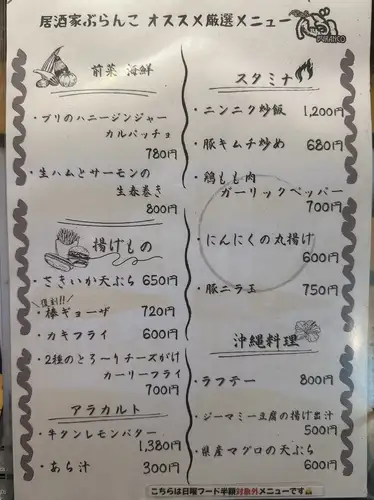 居酒家ぶらんこ オススメ厳選メニュー
ぶらんこ
BURANCO
前菜 海鮮
・ブリのハニージンジャー
カルパッチョ
780円
・生ハムとサーモンの
生春巻き
800円
揚げもの
・さきいか天ぷら 650円
復刻!!
・棒ギョーザ 720円
・カキフライ 600円
・2種のとろ〜りチーズがけ
カーリーフライ
700円
アラカルト
・牛タンレモンバター
1,380円
・あら汁 300円
スタミナ
・ニンニク炒飯 1,200円
・豚キムチ炒め 680円
・鶏もも肉
ガーリックペッパー
700円
・にんにくの丸揚げ
600円
・豚ニラ玉 750円
沖縄料理
・ラフテー 800円
・ジーマミー豆腐の揚げ出汁
500円
・県産マグロの天ぷら
600円
こちらは日曜フード半額対象外メニューです